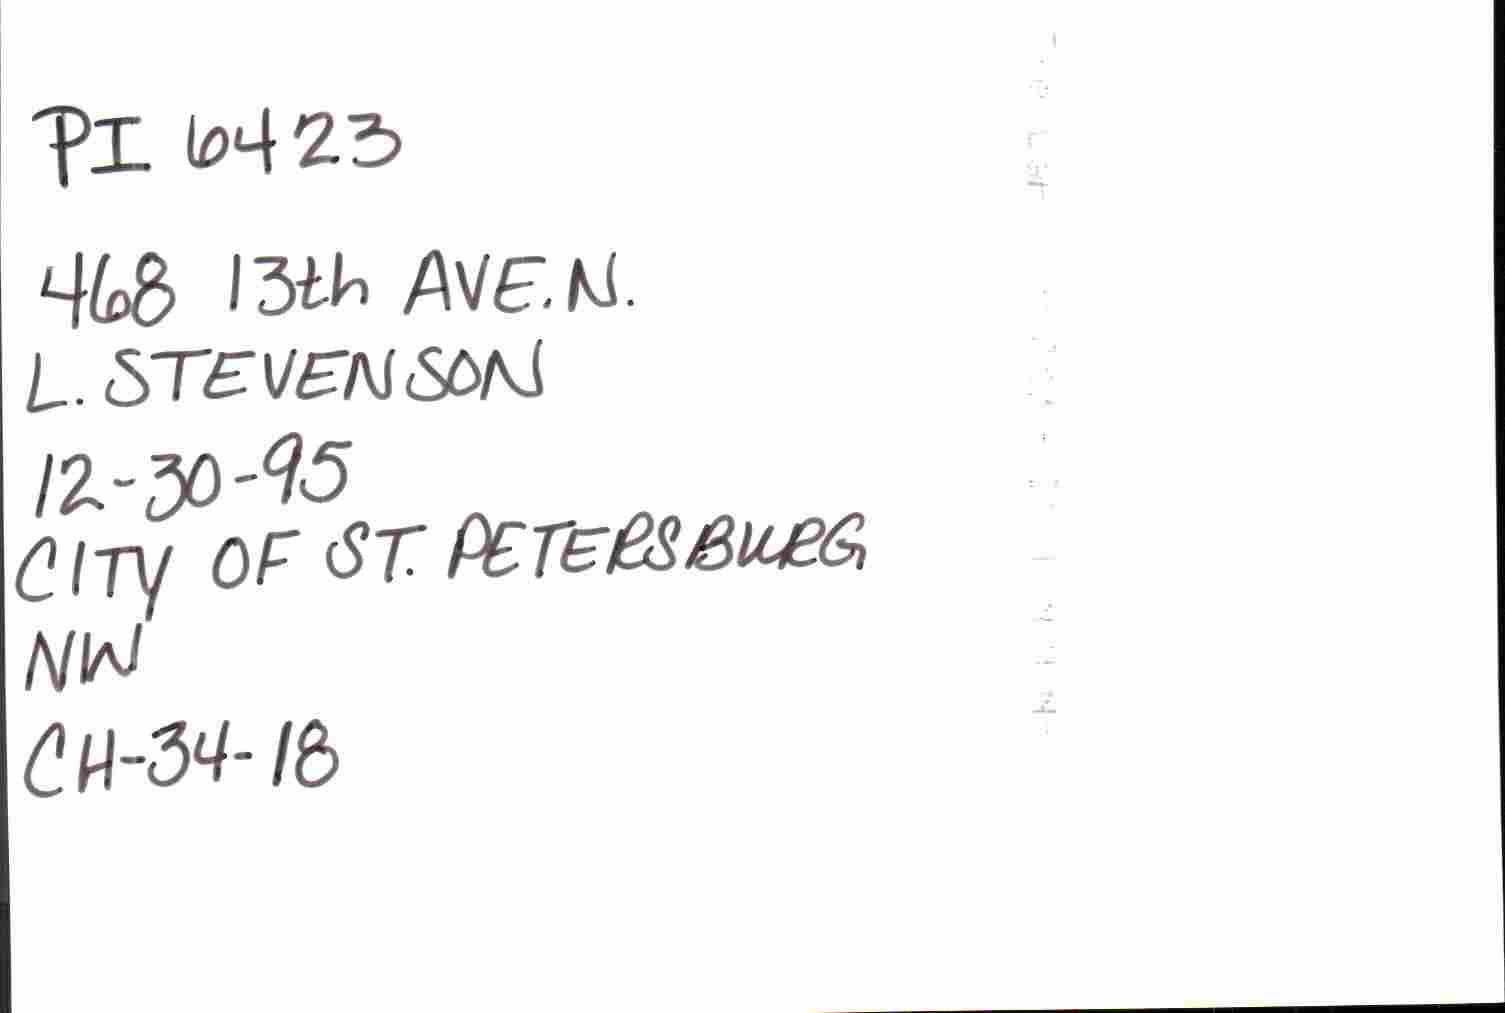 PI 6423
468 13th AVE.N.
L. STEVENSON
12-30-95
CITY OF ST. PETERSBURG
NW
CH-34-18